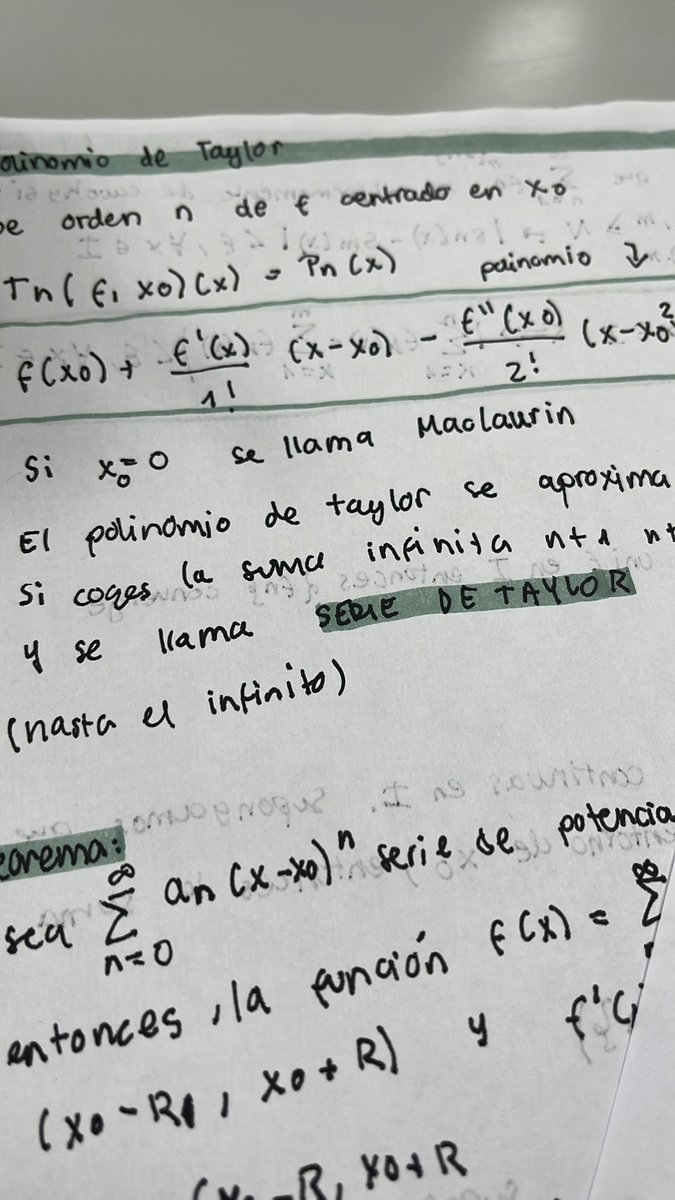 olinomio de Taylor
de orden n de f centrado en x0
Tn(f, x0)(x) = Pn(x) poinomio ↓
f(x0) + f'(x)/1! (x-x0) - f''(x0)/2! (x-x0)²
Si x0=0 se llama Maclaurin
El polinomio de taylor se aproxima
Si coges la suma infinita n+1 n+
y se llama SERIE DE TAYLOR
(hasta el infinito)
eorema:
sea ∑ n=0 ∞ an (x-x0)^n serie de potencia
entonces, la función f(x) = ∑ ∞
(x0-R, x0+R) y f'(
-R, x0+R